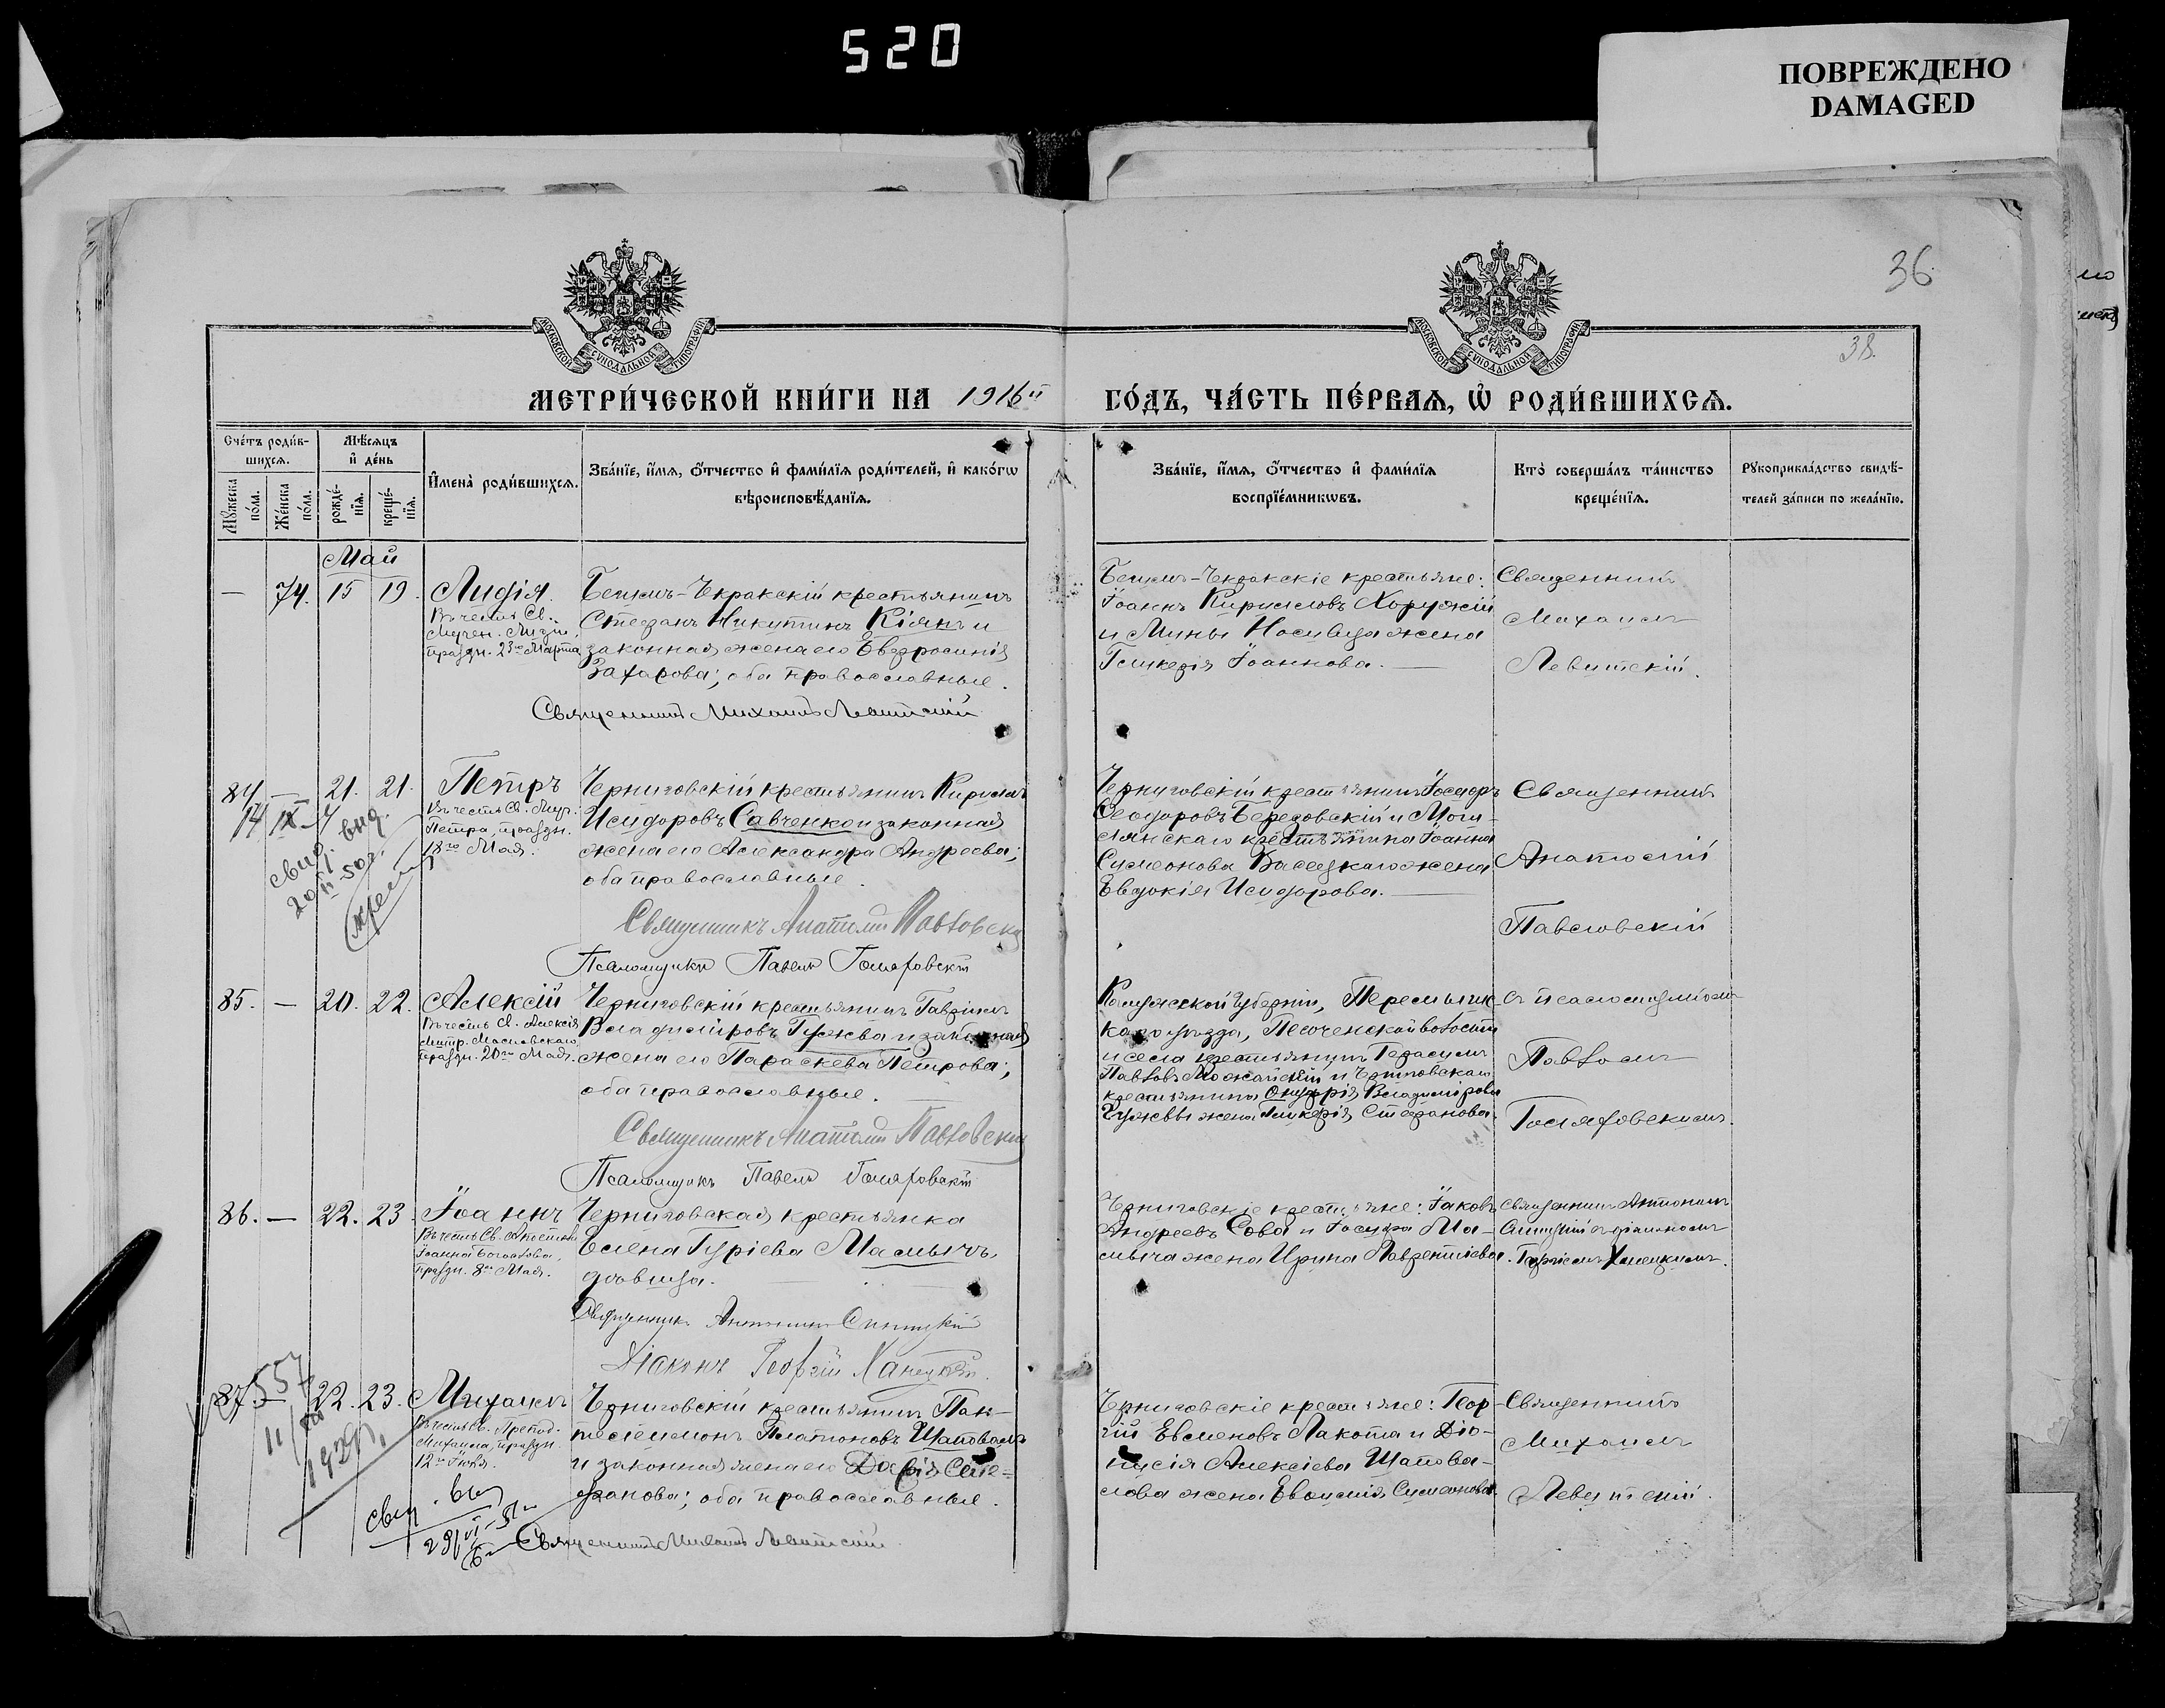 520
ПОВРЕЖДЕНО
DAMAGED
36
38.
МОСКОВСКОЙ СѴНОДАЛЬНОЙ ТИПОГРАФІИ
МОСКОВСКОЙ СѴНОДАЛЬНОЙ ТИПОГРАФІИ
МЕТРИ́ЧЕСКОЙ КНИ́ГИ НА 1916й
ГО́ДЪ, ЧА́СТЬ ПЕ́РВАѦ, Ѡ҆ РОДИ́ВШИХСѦ.
Сче́тъ роди́в-
шихсѧ.
Мꙋ́жеска по́ла.
Же́нска по́ла.
Мѣ́сѧцъ
и҆ де́нь
рожде́нїѧ.
креще́нїѧ.
И҆мена̀ роди́вшихсѧ.
Зва́нїе, и҆́мѧ, ѻ҆́тчество и҆ фами́лїѧ роди́телей, и҆ како́гѡ
вѣроисповѣ́данїѧ.
Зва́нїе, и҆́мѧ, ѻ҆́тчество и҆ фами́лїѧ
воспрїе́мникѡвъ.
Кто̀ соверша́лъ та́инство
креще́нїѧ.
Рꙋкоприкла́дство свидѣ́-
телей за́писи по жела́нїю.
Май
— 74. 15 19. Лидія.
Въ честь Св.
Мучен. Лидіи,
праздн. 23го Марта
Бешмъ-Чекракскій крестьянинъ
Стефанъ Никитинъ Кіянъ и
законная жена его Евфросинія
Захарова; оба православные.
Священникъ Михаилъ Левитскій
Бешмъ-Чекракскіе крестьяне:
Іоаннъ Кирилловъ Хоружій
и Мины Носивца жена
Гликерія Іоаннова.
Священникъ
Михаилъ
Левитскій.
84 — 21. 21. Петръ
Въ честь Св. Муч.
Петра, праздн.
18го Мая.
свид. выд.
Черниговскій крестьянинъ Кириллъ
Исидоровъ Савченко и законная
жена его Александра Андреева;
оба православные.
Священникъ Анатолій Павловскій
Псаломщикъ Павелъ Голяховскій
Черниговскій крестьянинъ Ѳеодоръ
Ѳеодоровъ Березовскій и Моги-
лянскаго крестьянина Іоанна
Симеонова жена
Евдокія Исидорова.
Священникъ
Анатолій
Павловскій
85. — 20. 22. Алексій
Въ честь Св. Алексія
Митр. Московскаго
праздн. 20го Мая.
Черниговскій крестьянинъ Гавріилъ
Владиміровъ Гужва и законная
жена его Параскева Петрова;
оба православные.
Священникъ Анатолій Павловскій
Псаломщикъ Павелъ Голяховскій
Калужской губерніи, Перемышль-
каго уѣзда, волости
и села крестьянинъ Герасимъ
Павловъ Можайскій и Черниговскаго
крестьянина Онуфрія Владимірова
Гужвы жена Гликерія Стефанова.
съ псаломщикомъ
Павломъ
Голяховскимъ.
86. — 22. 23. Іоаннъ
Въ честь Св. Апостола
Іоанна Богослова,
праздн. 8го Мая.
Черниговская крестьянка
Елена Гуріева Малышъ,
дѣвица.
Священникъ Антонинъ Синицкій
Діаконъ Георгій Ханецкій.
Черниговскіе крестьяне: Іаковъ
Андреевъ Сова и Іосифа Ма-
лыша жена Ирина Лаврентіева.
Священникъ Антонинъ
Синицкій съ діакономъ
Георгіемъ Ханецкимъ.
87. — 22. 23. Михаилъ
Въ честь Св. Препод.
Михаила, праздн.
12го Іюля.
557
свид. выд
Черниговскій крестьянинъ Пан-
телеимонъ Платоновъ Шаповалъ
и законная жена его Дарія Сте-
фанова; оба православные.
Священникъ Михаилъ Левитскій
Черниговскіе крестьяне: Геор-
гій Евменовъ Лакота и Діо-
нисія Алексіева Шапова-
лова жена Евдокія Симеонова.
Священникъ
Михаилъ
Левитскій.